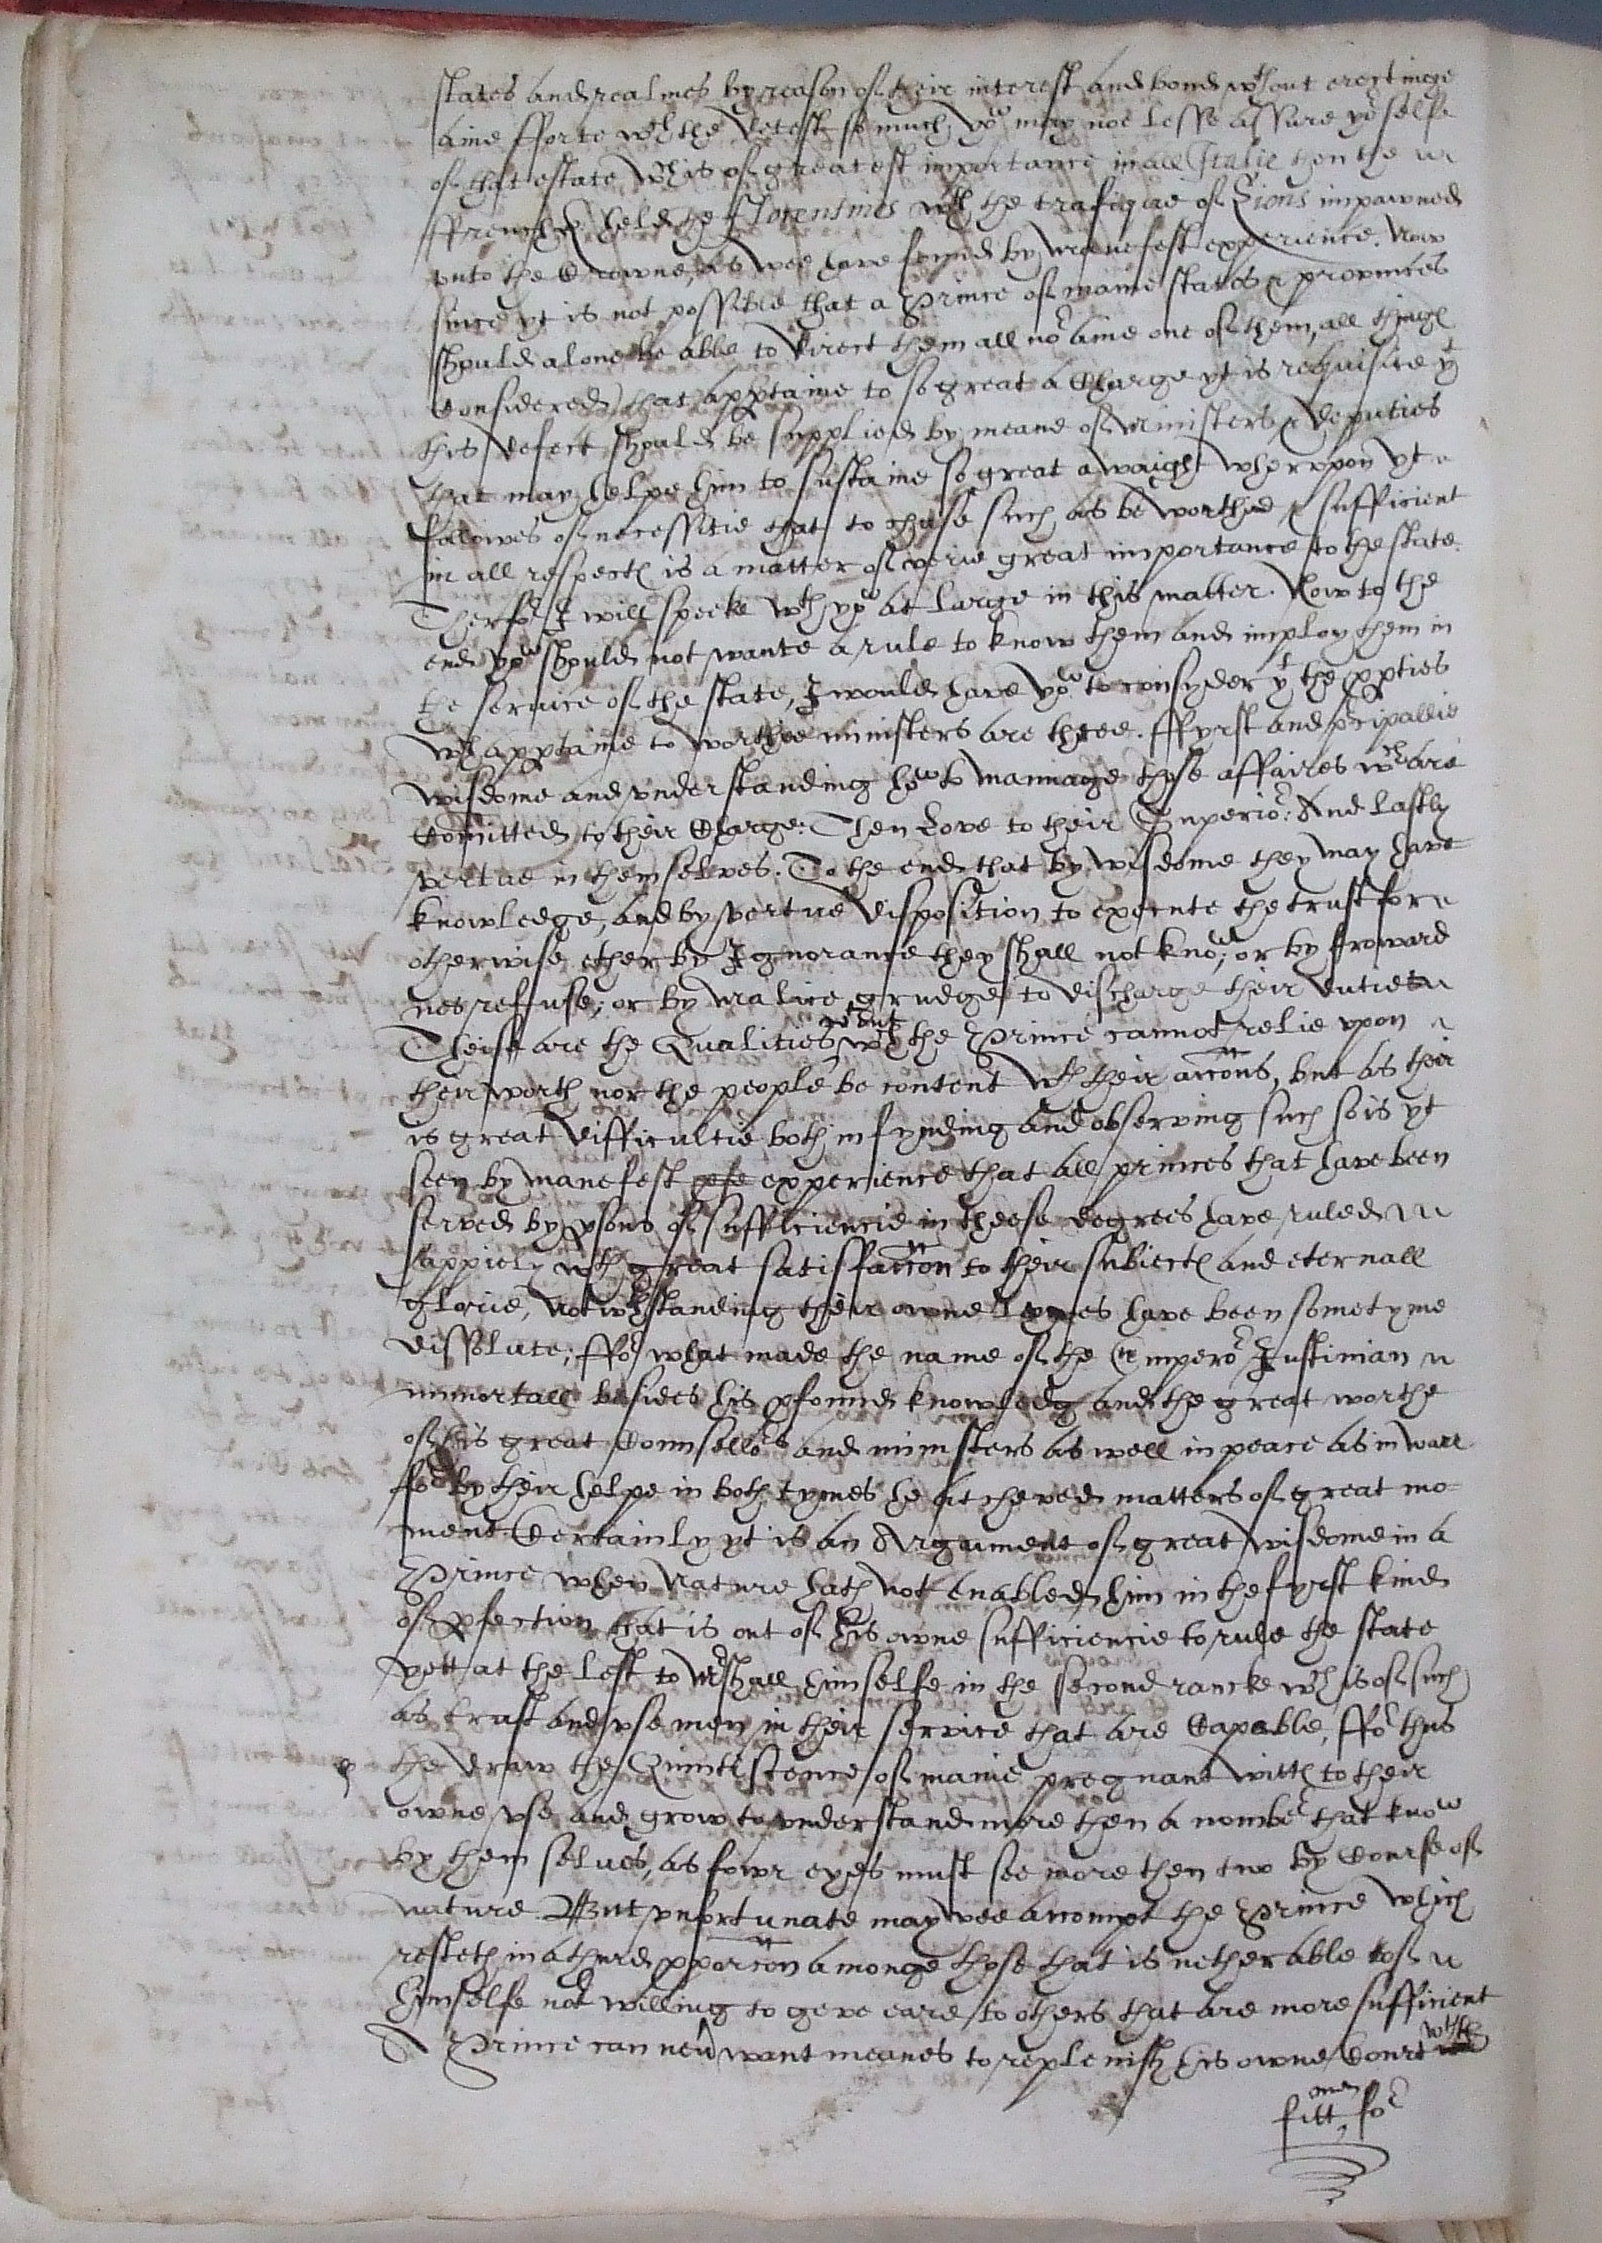 states and realmes by reason of their interest and bond wthout erectinge
anie fforte wch the detest so much, yow may noe lesse assure yor selfe
of that estate wch is of greatest importance in all Italie then the
ffrench held the fflorentines wth the trafique of Lions impawned
vnto the Crowne, as wee have found by manefest experience. Now
since yt is not possible that a Prince of manie states & provinces
should alone be able to direct them all nor anie one of them, all things
considered that apptaine to so great a Charge yt is requisite yt
this defect should be supplied by meane of ministers & deputies
that may helpe him to sustaine so great a waight wherevpon yt
falowes of necessitie that to chuse such as be worthie & sufficient
in all respects is a matter of verie great importance to the state.
Therfor I will speeke wth yow at large in this matter. Now to the
end yow should not wante a rule to know them and imploy them in
the service of the state, I would have yow to consyder yt the ppties
wch apptaine to worthie ministers are three. ffyrst and pricipallie
wisdome and vnderstanding how to mannage those affaires wch are
Comitted to their Charge: Then Love to their Superior: And lastly
vertue in themselves. To the end that by wisdome they may have
knowledge, and by vertue disposition to execute the trust for
otherwise ether by Ignorance they shall not know; or by froward
nes refuse; or by malice grudge to discharge their duties
Theise are the Qualities wthout wch the Prince cannot relie vpon
their worth nor the people be content wth their accons, but as their
is great difficultie both in fynding and observing such so is yt
seen by manefest experience that all princes that have been
served by psons of sufficiencie in theese degrees have ruled
happiely wth great satisfaccon to their subiects and eternall
glorie, Notwthstanding their owne lyves have been sometyme
dissolute; ffor what made the name of the Emperor Iustinian
immortall besides his pfound knowledg and the great worthe
of his great Counsellors and ministers as well in peace as in warr
for by their helpe in both tymes he atcheved matters of great mo
ment. Certainly yt is an Argument of great wisdome in a
Prince when Nature hath not enabled him in the fyrst kind
of pfection that is out of his owne sufficiencie to rule the state
yett at the lest to Mrshall himselfe in the second rancke wch is of such
as trust and vse men in their service that are Capable, ffor thus
the draw the Quintiscence of manie pregnant witts to their
owne vse and grow to vnderstand more then a nomber that know
by them selues, as fowr eyes must see more then two by Course of
nature But vnfortunate may wee accompt the Prince which
resteth in a thurd pporcon amonge those that is nether able of
himselfe nor willing to geve eare to others that are more sufficient
A Prince can nevr want meanes to replenish his owne Court wth
men
fitt for